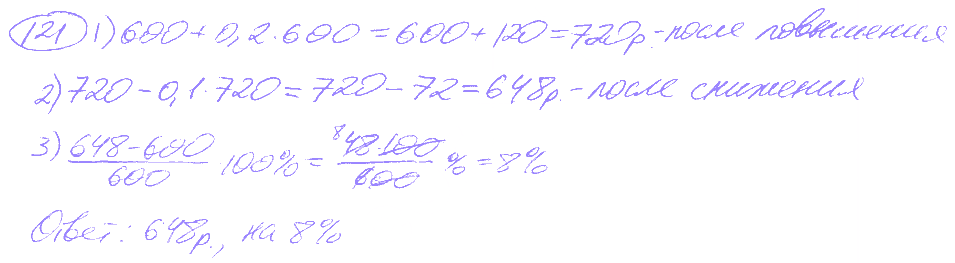 121 1) 600 + 0,2 · 600 = 600 + 120 = 720р. - после повышения
2) 720 - 0,1 · 720 = 720 - 72 = 648р. - после снижения
3) (648 - 600)/600 · 100% = (48 · 100)/600 % = 8%
Ответ: 648р., на 8%